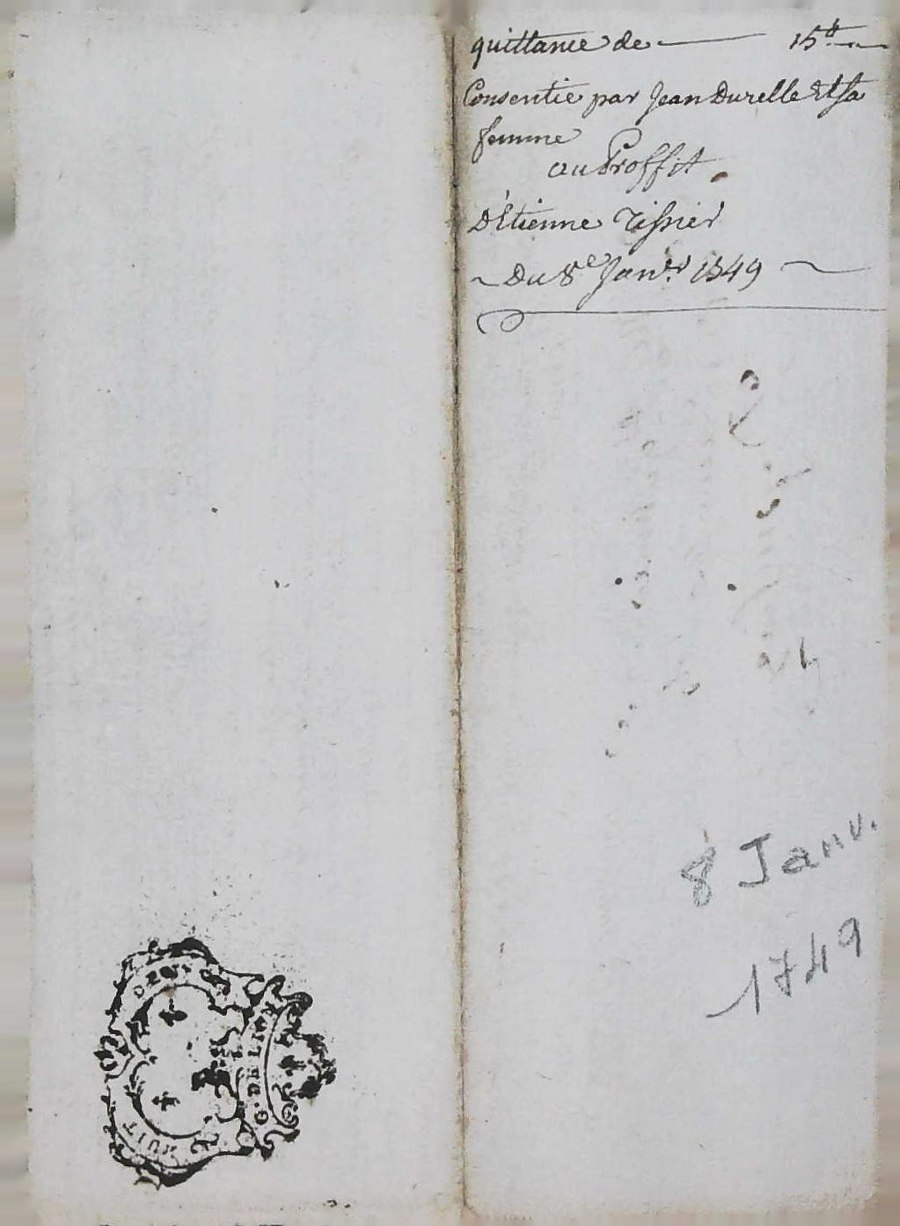 quittance de 15 ₶
Consentie par Jean Durelle Et Sa
femme
au Proffit
D'Etienne Tissier
Du 8e Janer 1749
8 Janv.
1749
G. DE LI
HUIT
DEN